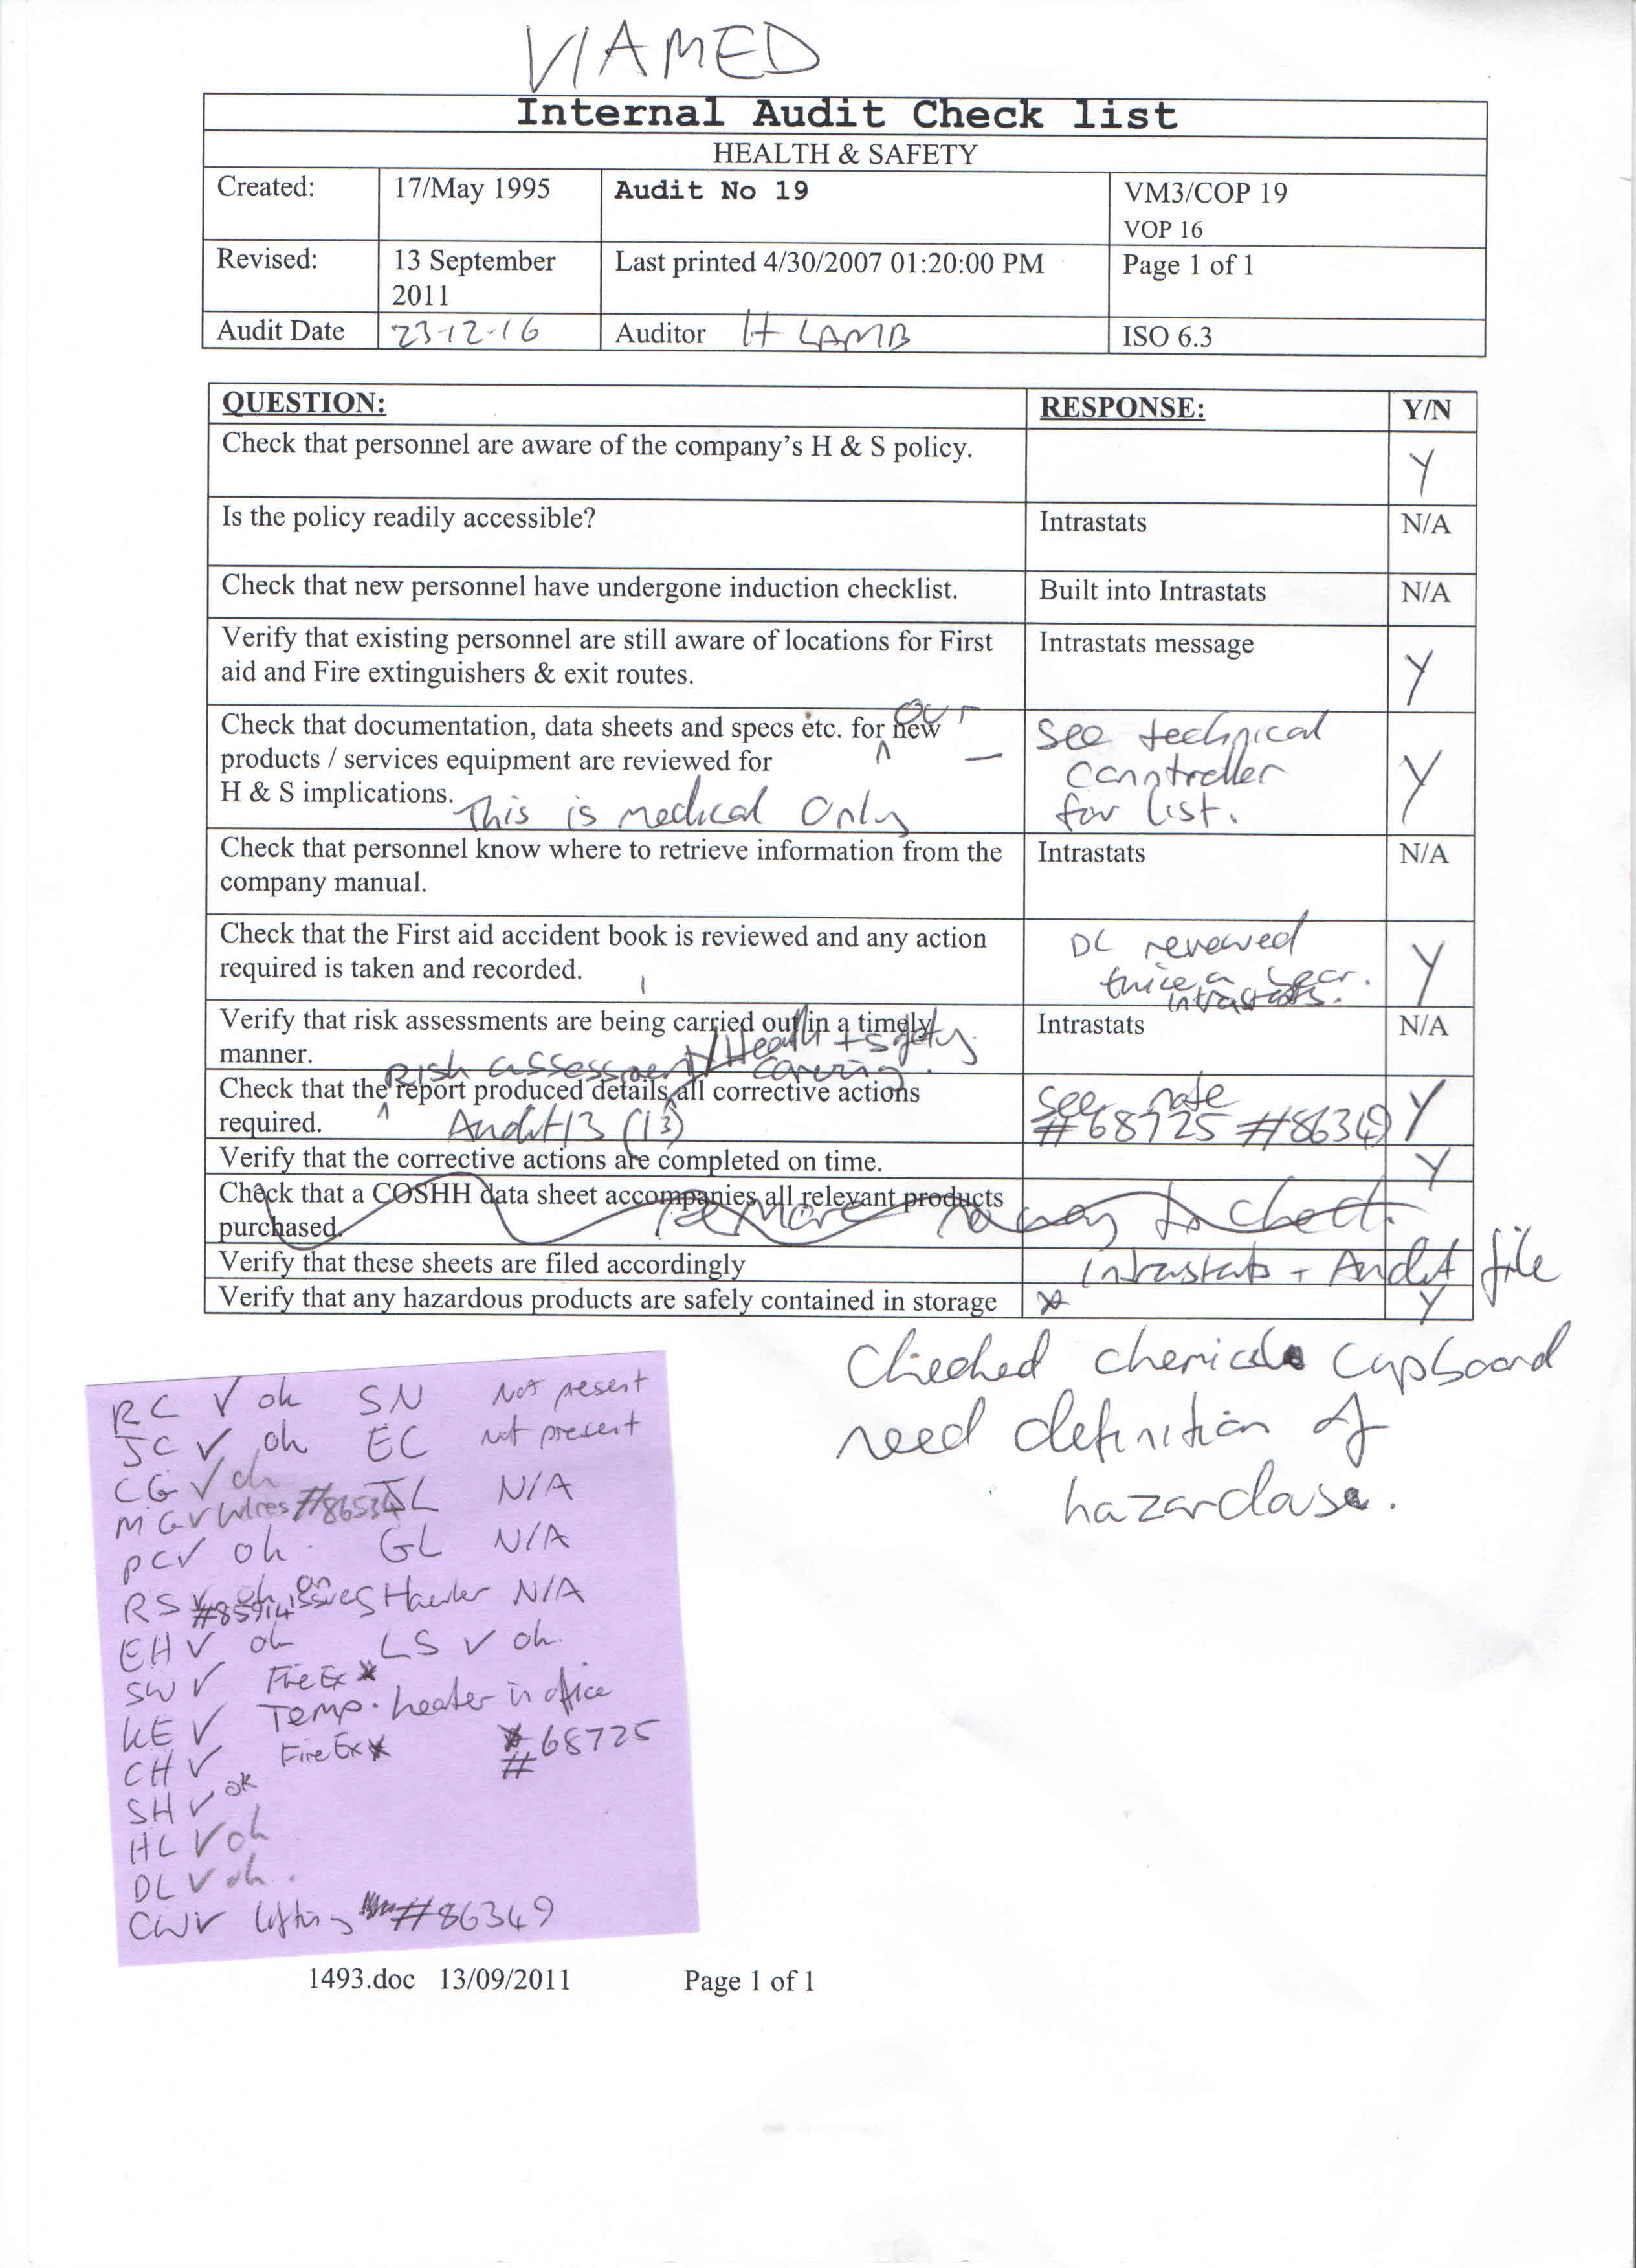 VIAMED
Internal Audit Check list
HEALTH & SAFETY
Created: 17/May 1995 Audit No 19 VM3/COP 19
VOP 16
Revised: 13 September Last printed 4/30/2007 01:20:00 PM Page 1 of 1
2011
Audit Date 23-12-16 Auditor H LAMB ISO 6.3
QUESTION: RESPONSE: Y/N
Check that personnel are aware of the company's H & S policy. Y
Is the policy readily accessible? Intrastats N/A
Check that new personnel have undergone induction checklist. Built into Intrastats N/A
Verify that existing personnel are still aware of locations for First Intrastats message Y
aid and Fire extinguishers & exit routes.
our
Check that documentation, data sheets and specs etc. for new See technical
products / services equipment are reviewed for canntroller Y
H & S implications. This is medical Only for list.
Check that personnel know where to retrieve information from the Intrastats N/A
company manual.
Check that the First aid accident book is reviewed and any action DC revewed Y
required is taken and recorded. twice a year.
intrastats.
Verify that risk assessments are being carried out in a timely Intrastats N/A
manner.
Risk assessment / Health + safety
covering.
Check that the report produced details all corrective actions See note Y
required. Audit 13 (13) #68725 #86349
Verify that the corrective actions are completed on time. Y
Check that a COSHH data sheet accompanies all relevant products
purchased. to check.
Verify that these sheets are filed accordingly Intrastats + Audit file
Verify that any hazardous products are safely contained in storage Y
Checked chemicals cupboard
need definition of
hazardous.
RC ✓ ok SN Not present
JC ✓ ok EC not present
CG ✓ ok
MG ✓ Wires #86534 JL N/A
PC ✓ ok. GL N/A
RS #85914 issues N/A
EH ✓ ok LS ✓ ok.
SW ✓ Fire Ex
KE ✓ Temp. heater in office
CH ✓ Fire Ex #68725
SH ✓ ok
HL ✓ ok
DL ✓ ok.
CW ✓ lifting #86349
1493.doc 13/09/2011 Page 1 of 1